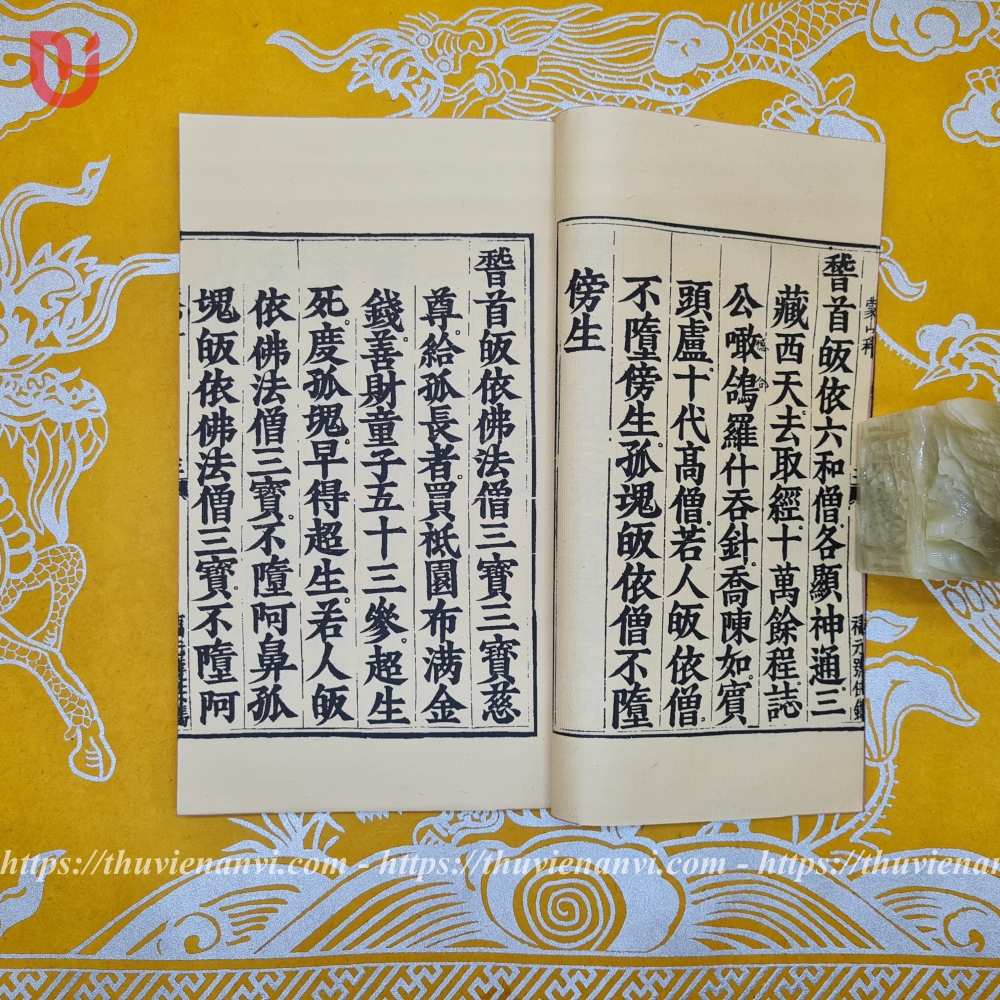 蒙山科
稽首皈依六和僧。各顯神通三
藏西天。去取經。十萬餘程。誌
公噉鴿。羅什吞針。喬陳如。賓
頭盧。十代高僧。若人皈依僧。
不墮傍生。孤塊皈依僧不墮
傍生
稽首皈依佛法僧三寶三寶慈
尊。給孤長者。買祇園布满金
錢。善財童子五十三參。超生
死。度孤塊早得超生。若人皈
依佛法僧三寶。不墮阿鼻孤
塊皈依佛法僧三寶。不墮阿
https://thuvienanvi.com - https://thuvienanvi.com - https://thuvienanvi